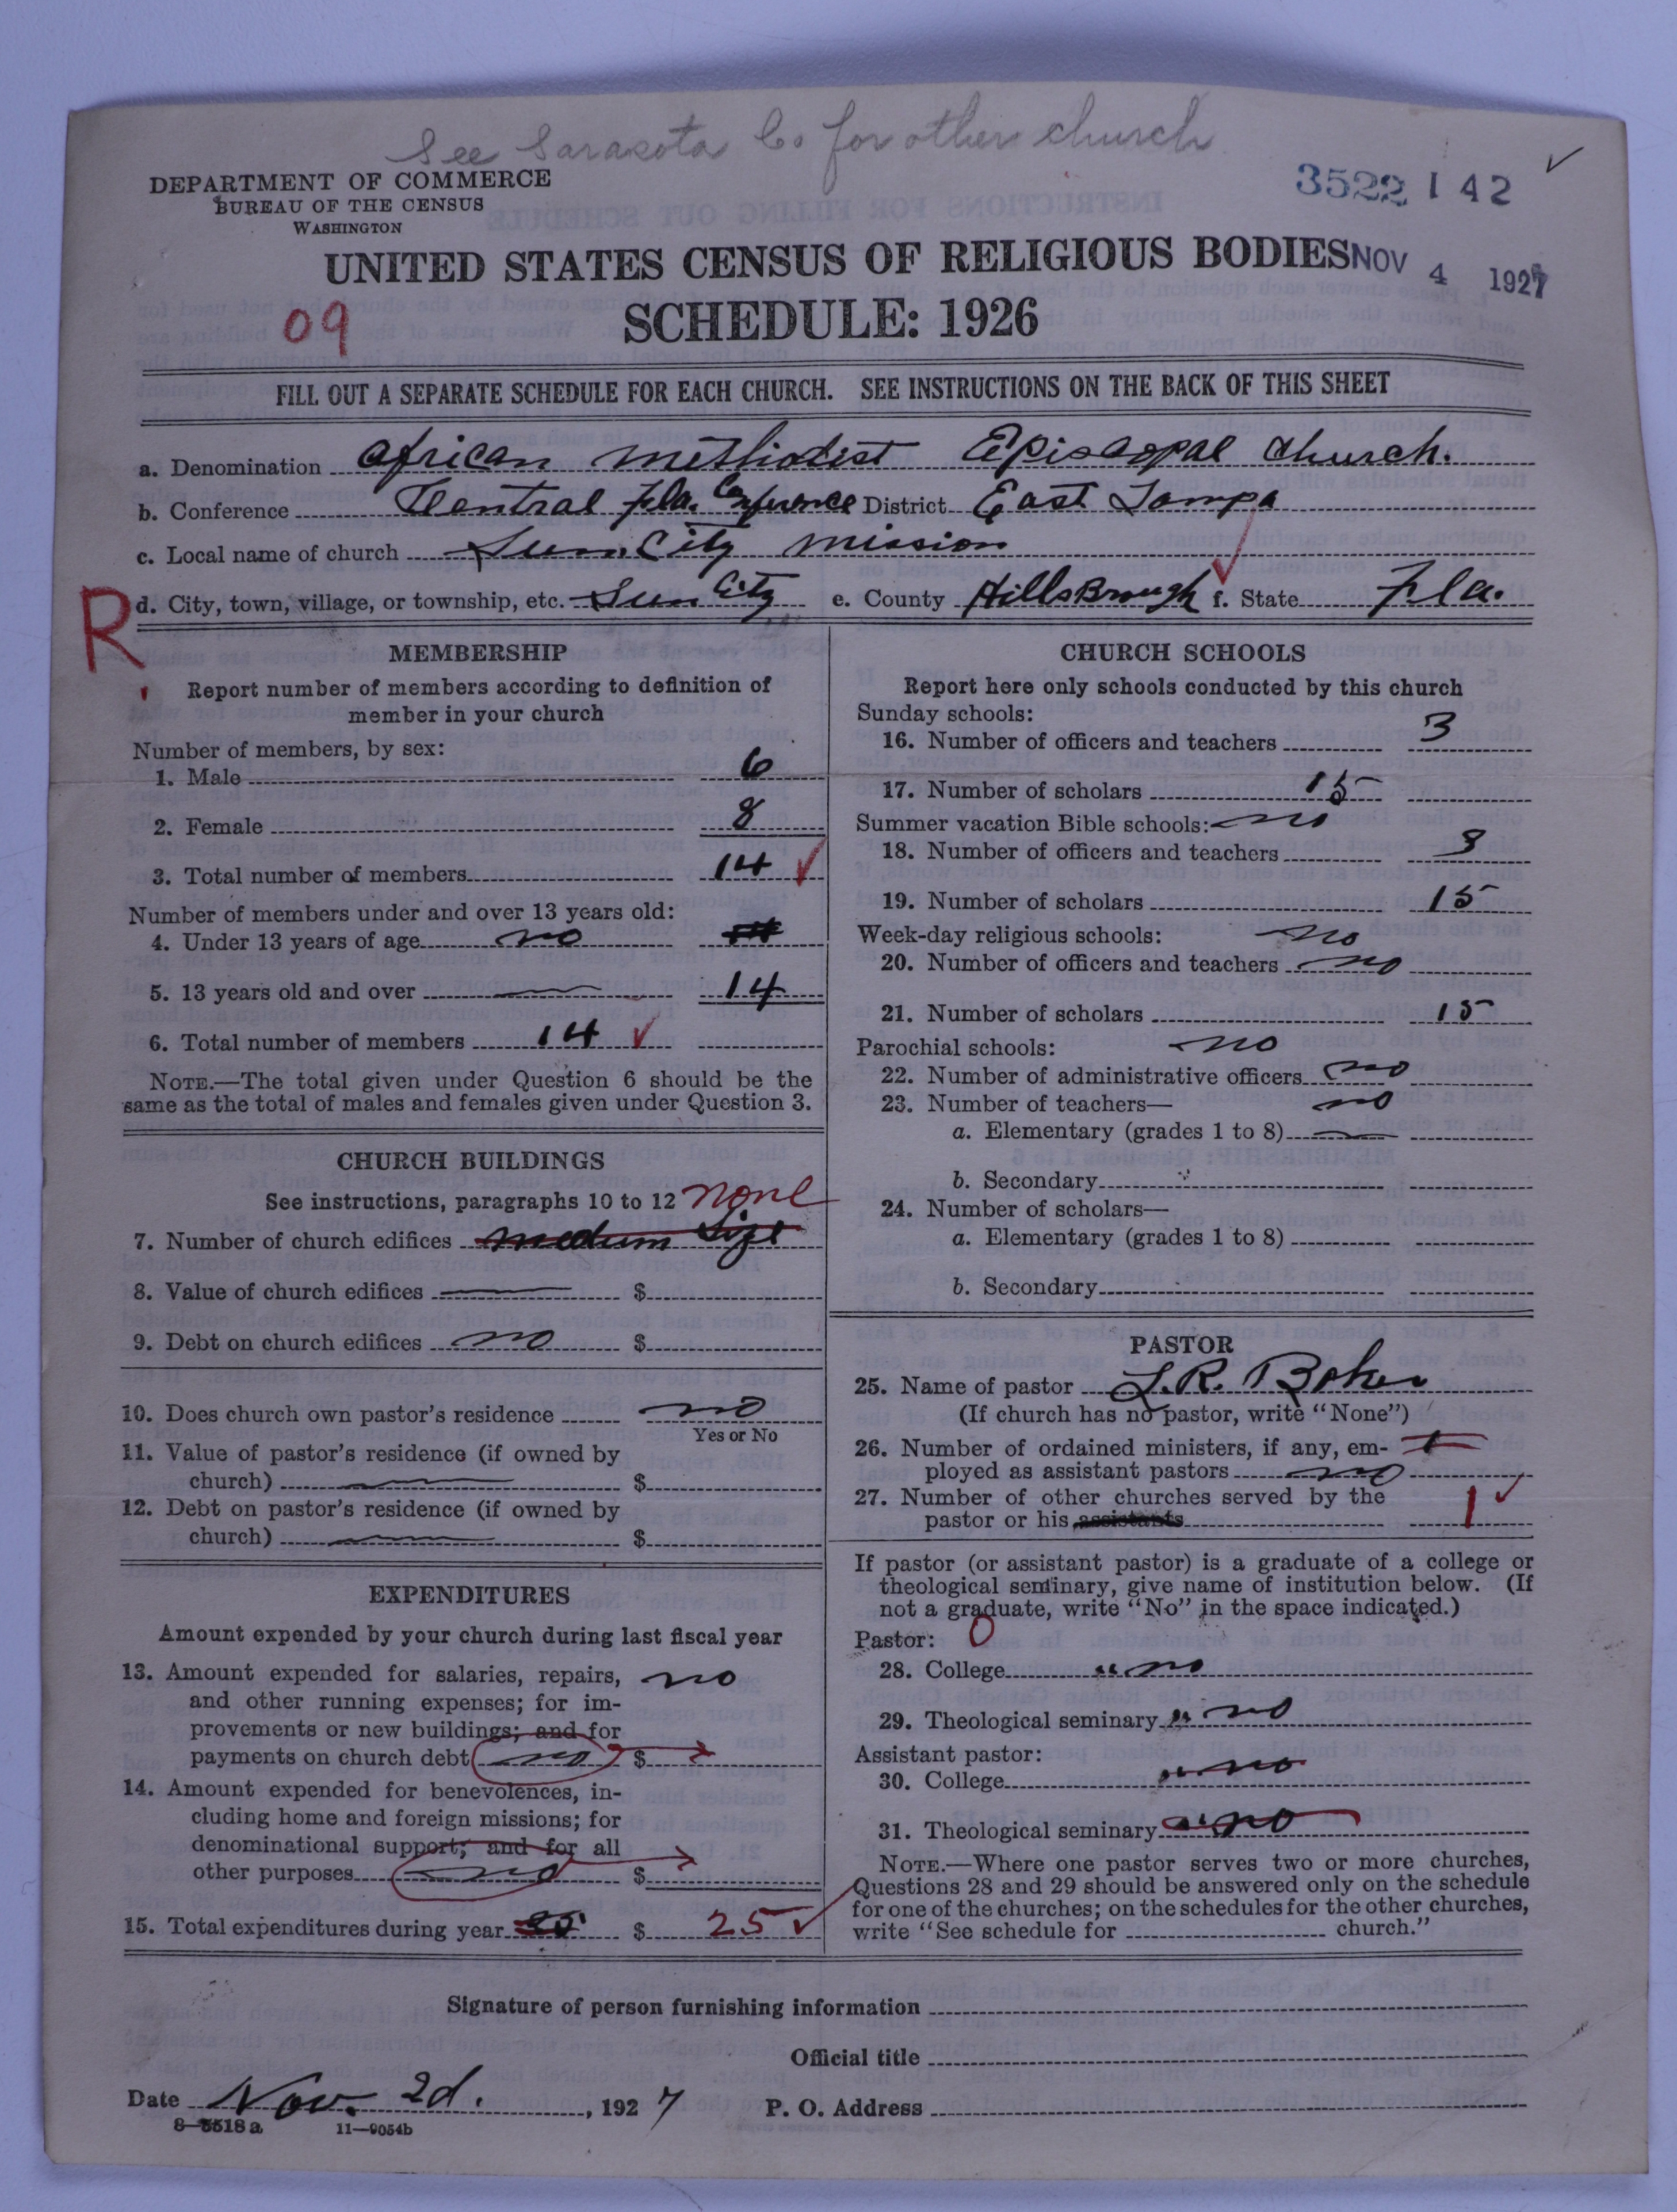 See Sarasota Co for other church
DEPARTMENT OF COMMERCE
BUREAU OF THE CENSUS
WASHINGTON
3522 142 ✓
UNITED STATES CENSUS OF RELIGIOUS BODIES NOV 4 1927
09 SCHEDULE: 1926
FILL OUT A SEPARATE SCHEDULE FOR EACH CHURCH. SEE INSTRUCTIONS ON THE BACK OF THIS SHEET
a. Denomination African Methodist Episcopal Church.
b. Conference Central Fla. Conference District East Tampa
c. Local name of church Sun City Mission
R d. City, town, village, or township, etc. Sun City e. County HillsBrough f. State Fla.
MEMBERSHIP
Report number of members according to definition of
member in your church
Number of members, by sex:
1. Male 6
2. Female 8
3. Total number of members 14 ✓
Number of members under and over 13 years old:
4. Under 13 years of age no
5. 13 years old and over — 14
6. Total number of members 14 ✓
NOTE.—The total given under Question 6 should be the
same as the total of males and females given under Question 3.
CHURCH BUILDINGS
See instructions, paragraphs 10 to 12 none
7. Number of church edifices medum Size
8. Value of church edifices — $
9. Debt on church edifices no $
10. Does church own pastor's residence no
Yes or No
11. Value of pastor's residence (if owned by
church) — $
12. Debt on pastor's residence (if owned by
church) — $
EXPENDITURES
Amount expended by your church during last fiscal year
13. Amount expended for salaries, repairs, no
and other running expenses; for im-
provements or new buildings; and for
payments on church debt no $
14. Amount expended for benevolences, in-
cluding home and foreign missions; for
denominational support; and for all
other purposes no $
15. Total expenditures during year 25 $ 25 ✓
CHURCH SCHOOLS
Report here only schools conducted by this church
Sunday schools:
16. Number of officers and teachers 3
17. Number of scholars 15
Summer vacation Bible schools: no
18. Number of officers and teachers 3
19. Number of scholars 15
Week-day religious schools: no
20. Number of officers and teachers no
21. Number of scholars 15
Parochial schools: no
22. Number of administrative officers no
23. Number of teachers— no
a. Elementary (grades 1 to 8) —
b. Secondary
24. Number of scholars—
a. Elementary (grades 1 to 8)
b. Secondary
PASTOR
25. Name of pastor L.R. Baker
(If church has no pastor, write "None")
26. Number of ordained ministers, if any, em- 1
ployed as assistant pastors no
27. Number of other churches served by the 1 ✓
pastor or his assistants
If pastor (or assistant pastor) is a graduate of a college or
theological seminary, give name of institution below. (If
not a graduate, write "No" in the space indicated.)
Pastor: 0
28. College " no
29. Theological seminary " no
Assistant pastor:
30. College " no
31. Theological seminary " no
NOTE.—Where one pastor serves two or more churches,
Questions 28 and 29 should be answered only on the schedule
for one of the churches; on the schedules for the other churches,
write "See schedule for church."
Signature of person furnishing information
Official title
Date Nov. 2d. , 1927 P. O. Address
8—5518a 11—9054b